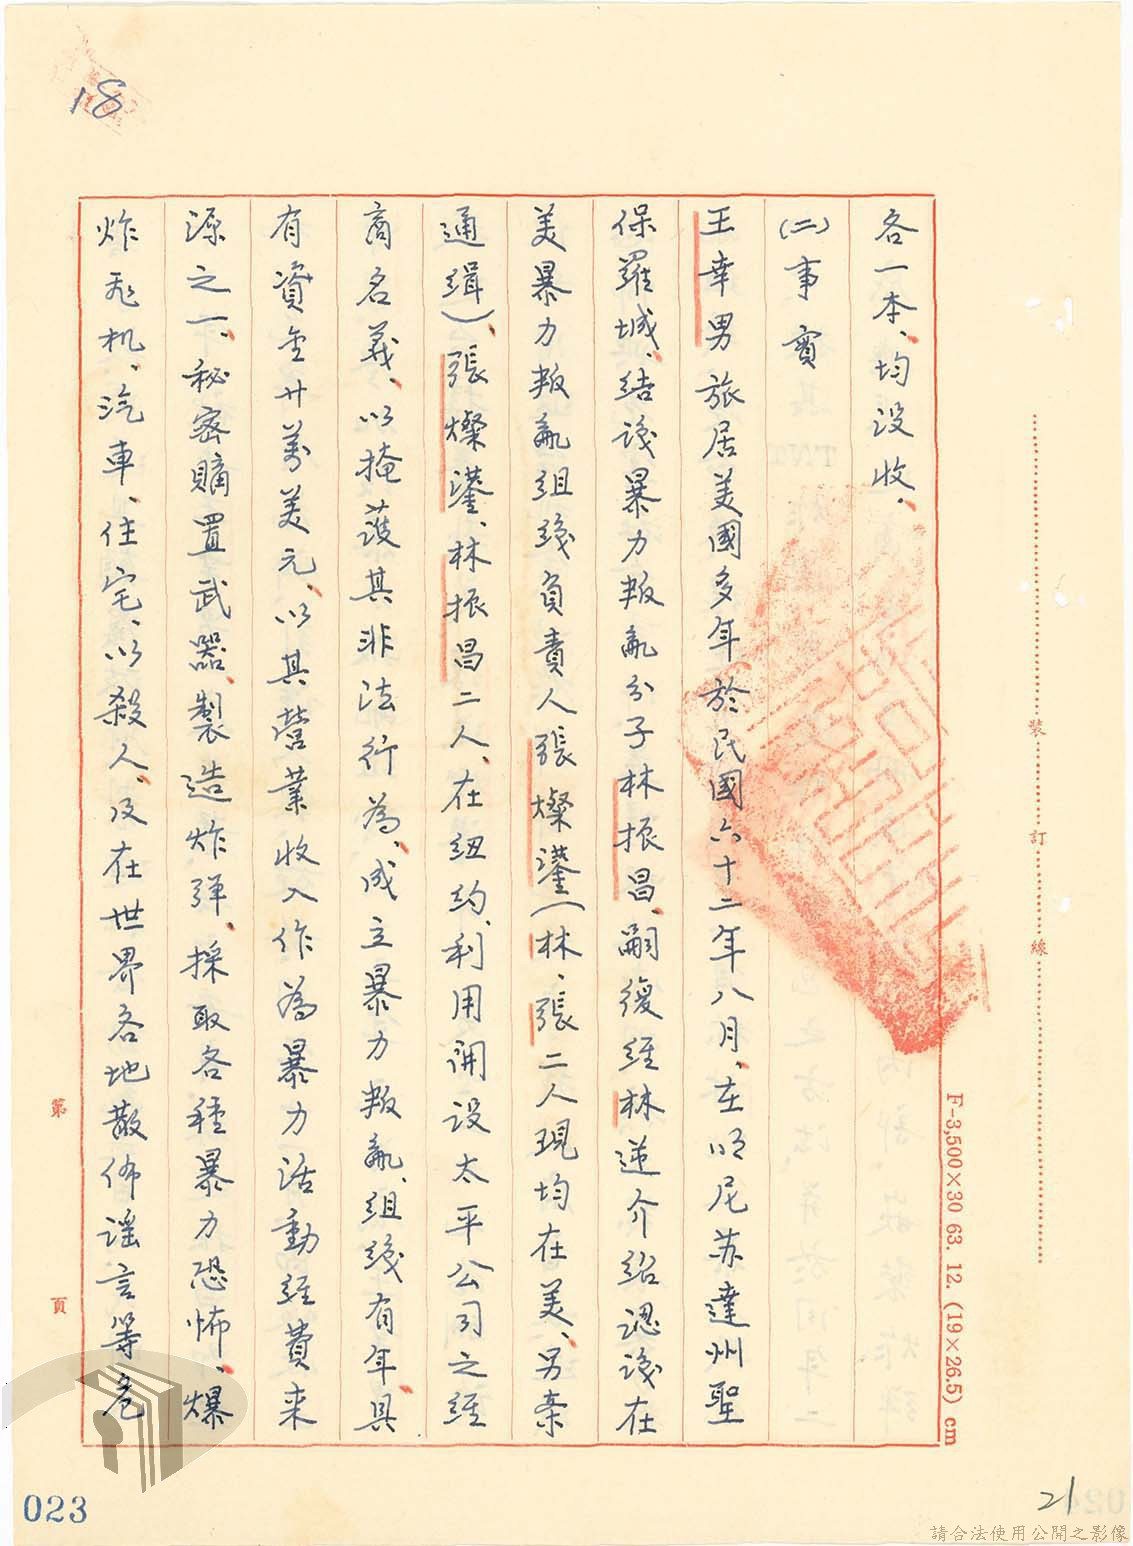 18
各一本、均没收、
(二)事實
王幸男旅居美國多年於民國六十二年八月、在明尼苏達州聖
保羅城、结识暴力叛亂分子林振昌、嗣復经林逆介紹認识在
美暴力叛亂组织負責人張燦鍙(林、張二人現均在美、另案
通缉)、張燦鍙、林振昌二人、在纽约、利用開設太平公司之经
商名義、以掩護其非法行為、成立暴力叛亂、组织有年、具
有資金廿萬美元、以其營業收入作為暴力活動经費来
源之一、秘密購置武器、製造炸弹、採取各種暴力恐怖、爆
炸飛机、汽車、住宅、以殺人、及在世界各地散佈謡言等危
第 頁
裝 訂 線
F-3,500×30 63. 12. (19×26.5) cm
023
21
請合法使用公開之影像